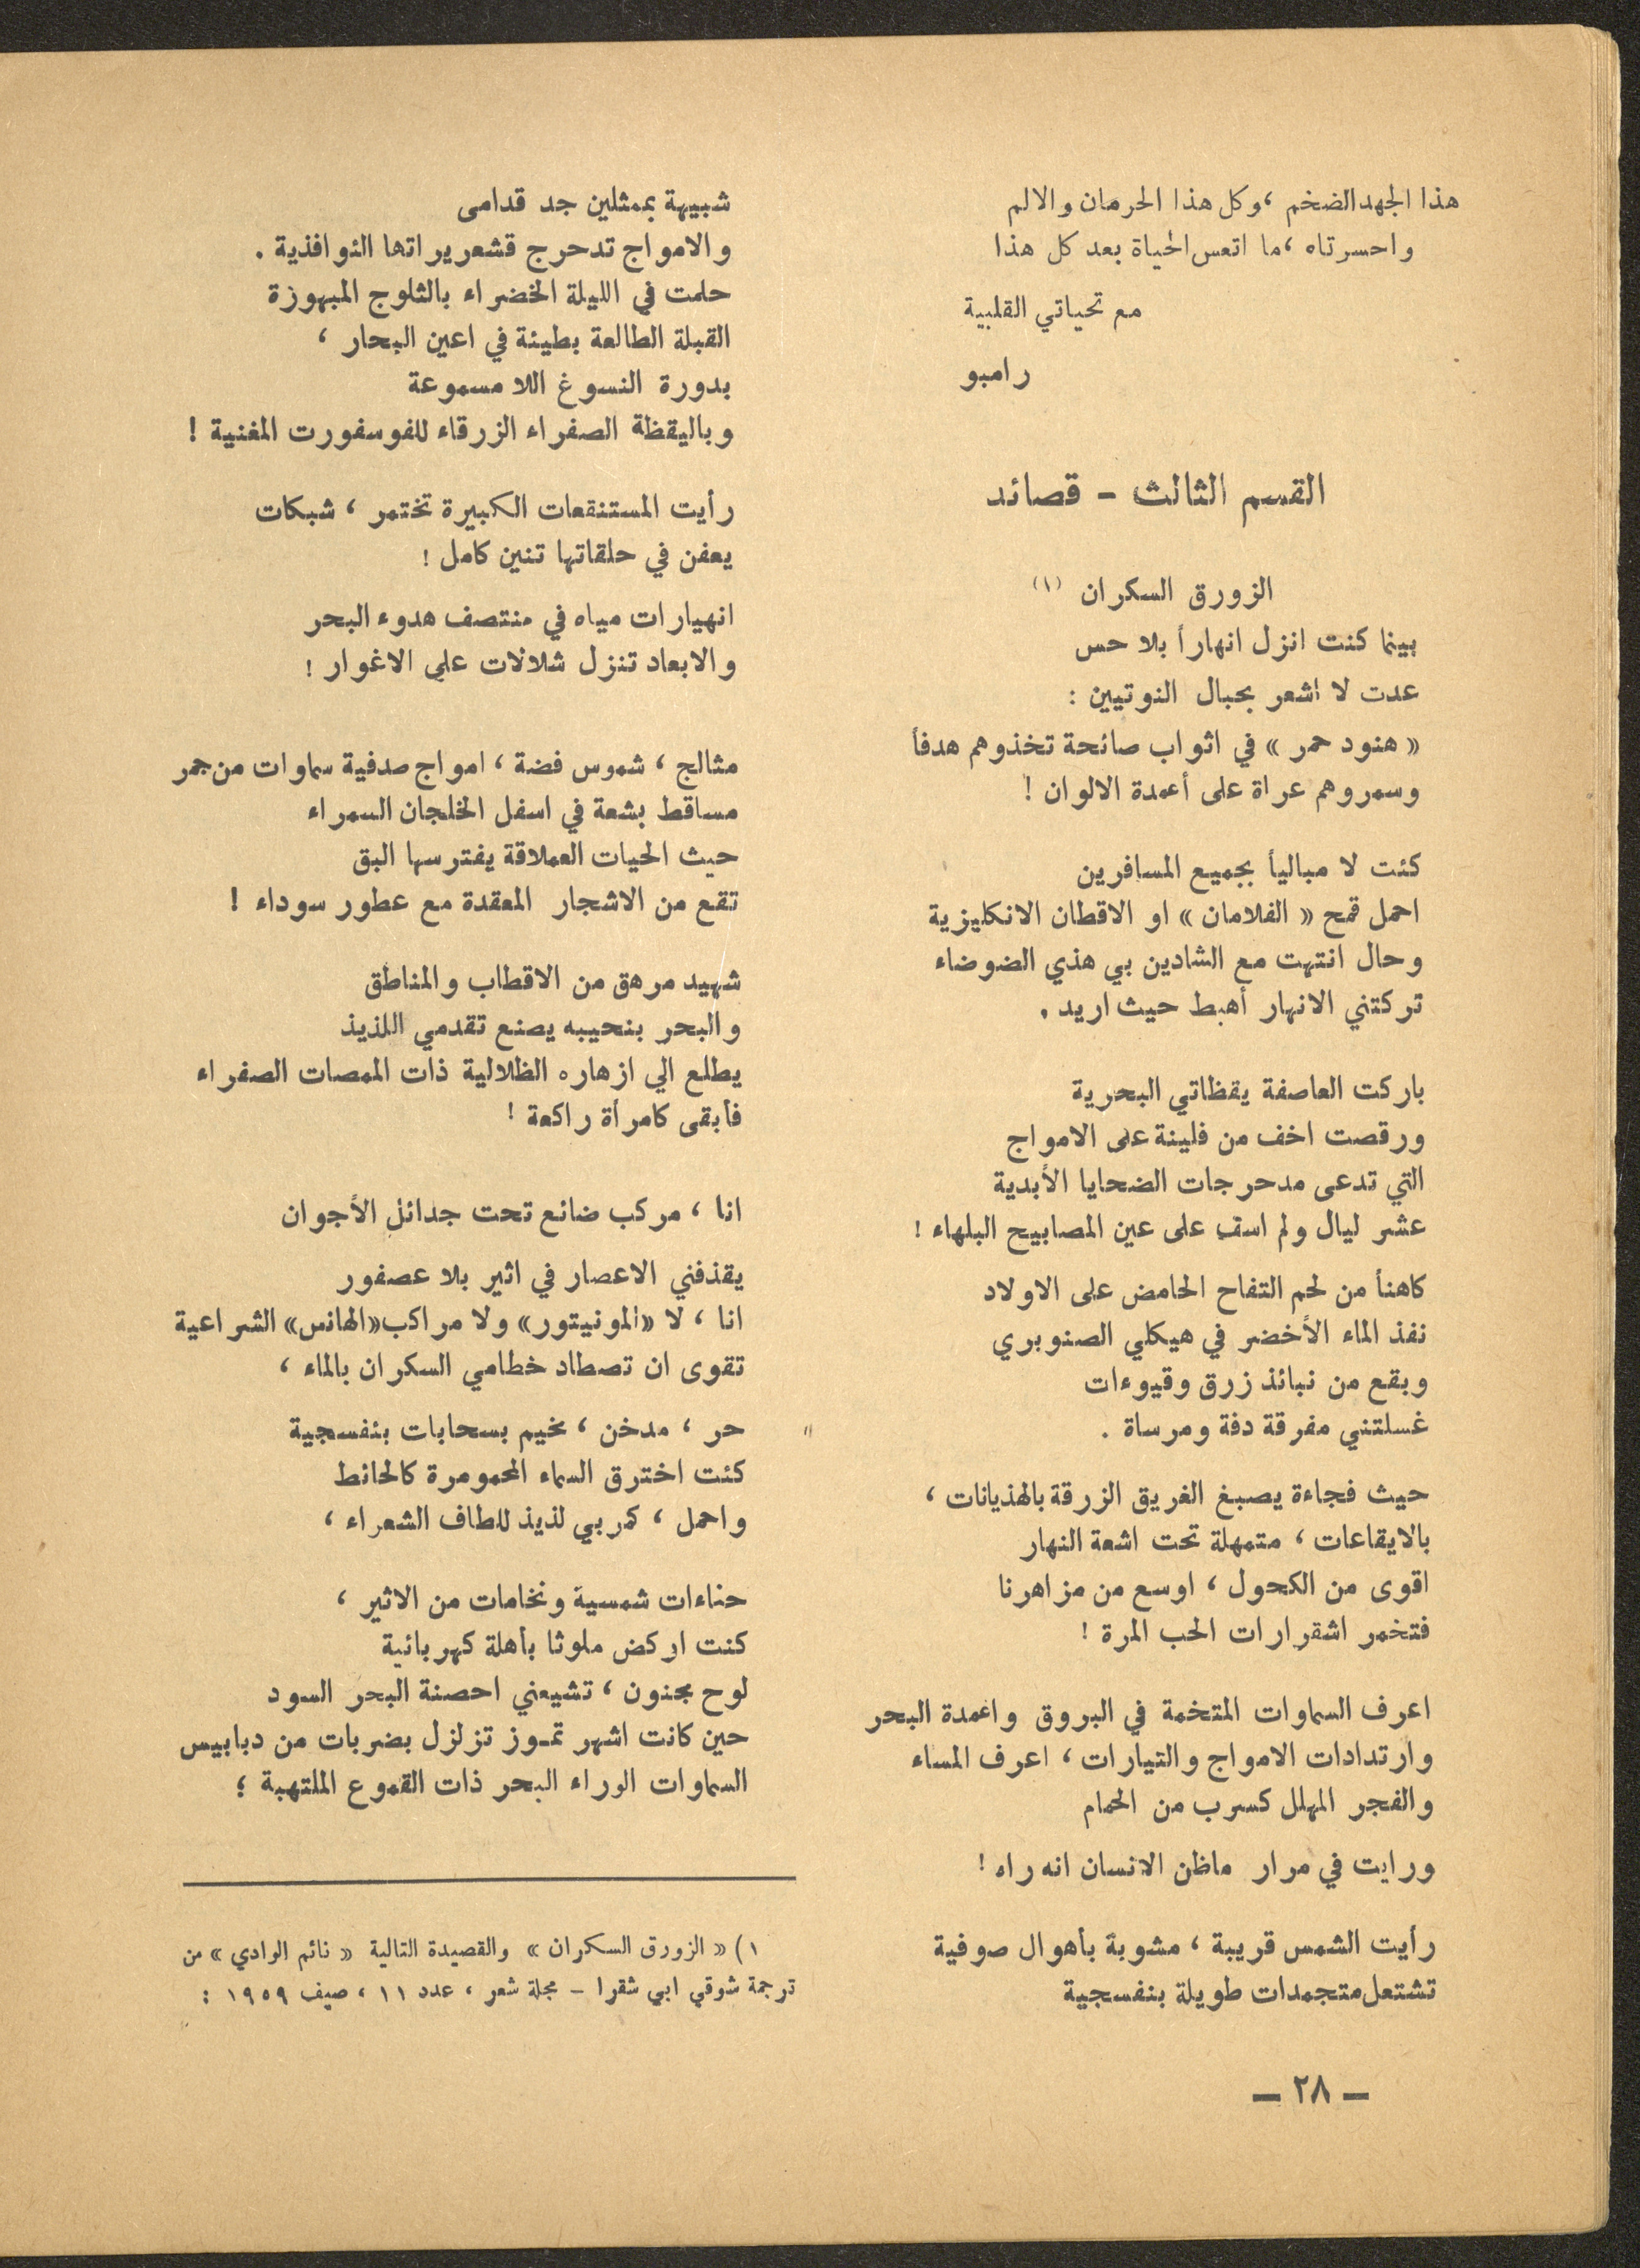 هذا الجهد الضخم ، وكل هذا الحرمان والالم
واحسرتاه ، ما اتعس الحياة بعد كل هذا
مع تحياتي القلبية
رامبو
القسم الثالث – قصائد
الزورق السكران (١)
بينما كنت انزل انهاراً بلا حس
عدت لا اشعر بحبال النوتيين :
« هنود حمر » في اثواب صائحة تخذوهم هدفاً
وسمروهم عراة على أعمدة الالوان !
كنت لا مبالياً بجميع المسافرين
احمل قمح « الفلامان » او الاقطان الانكليزية
وحال انتهت مع الشادين بي هذي الضوضاء
تركتني الانهار أهبط حيث اريد .
باركت العاصفة يقظاتي البحرية
ورقصت اخف من فلينة على الامواج
التي تدعى مدحرجات الضحايا الأبدية
عشر ليال ولم اسف على عين المصابيح البلهاء !
كاهناً من لحم التفاح الحامض على الاولاد
نفذ الماء الأخضر في هيكلي الصنوبري
وبقع من نبائذ زرق وقيوءات
غسلتني مفرقة دفة ومرساة .
حيث فجاءة يصبغ الغريق الزرقة بالهذيانات ،
بالايقاعات ، متمهلة تحت اشعة النهار
اقوى من الكحول ، اوسع من مزاهرنا
فتخمر اشقرارات الحب المرة !
اعرف السماوات المتخمة في البروق واعمدة البحر
وارتدادات الامواج والتيارات ، اعرف المساء
والفجر المهلل كسرب من الحمام
ورايت في مرار ماظن الانسان انه راه !
رأيت الشمس قريبة ، مشوبة بأهوال صوفية
تشتعل متجمدات طويلة بنفسجية
شبيهة بممثلين جد قدامى
والامواج تدحرج قشعريراتها النوافذية .
حلمت في الليلة الخضراء بالثلوج المبهوزة
القبلة الطالعة بطيئة في اعين البحار ،
بدورة النسوغ اللا مسموعة
وباليقظة الصفراء الزرقاء للفوسفورت المغنية !
رأيت المستنقعات الكبيرة تختمر ، شبكات
يعفن في حلقاتها تنين كامل !
انهيارات مياه في منتصف هدوء البحر
والابعاد تنزل شلالات على الاغوار !
مثالج ، شموس فضة ، امواج صدفية سماوات من جمر
مساقط بشعة في اسفل الخلجان السمراء
حيث الحيات العملاقة يفترسها البق
تقع من الاشجار المعقدة مع عطور سوداء !
شهيد مرهق من الاقطاب والمناطق
والبحر بنحيبه يصنع تقدمي اللذيذ
يطلع الي ازهاره الظلالية ذات الممصات الصفراء
فأبقى كامرأة راكعة !
انا ، مركب ضائع تحت جدائل الأجوان
يقذفني الاعصار في اثير بلا عصفور
انا ، لا «المونيتور» ولا مراكب «الهانس» الشراعية
تقوى ان تصطاد خطامي السكران بالماء ،
حر ، مدخن ، مخيم بسحابات بنفسجية
كنت اخترق السماء المحمومرة كالحائط
واحمل ، كمربي لذيذ للطاف الشعراء ،
حناءات شمسية ونخامات من الاثير ،
كنت اركض ملوثا بأهلة كهربائية
لوح مجنون ، تشيعني احصنة البحر السود
حين كانت اشهر تمـوز تزلزل بضربات من دبابيس
السماوات الوراء البحر ذات القموع الملتهبة ؛
١) « الزورق السكران » والقصيدة التالية « نائم الوادي » من
ترجمة شوقي ابي شقرا – مجلة شعر ، عدد ١١ ، صيف ١٩٥٩ :
– ٢٨ –